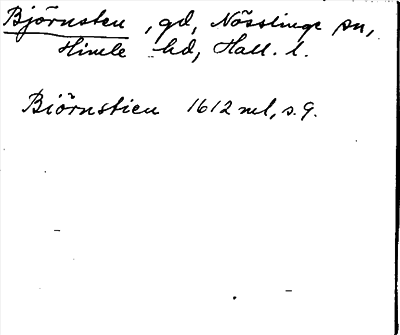 Björnsten, gd, Nösslinge sn,
Himle hd, Hall. l.
Biörnstien 1612 ml, s. 9.